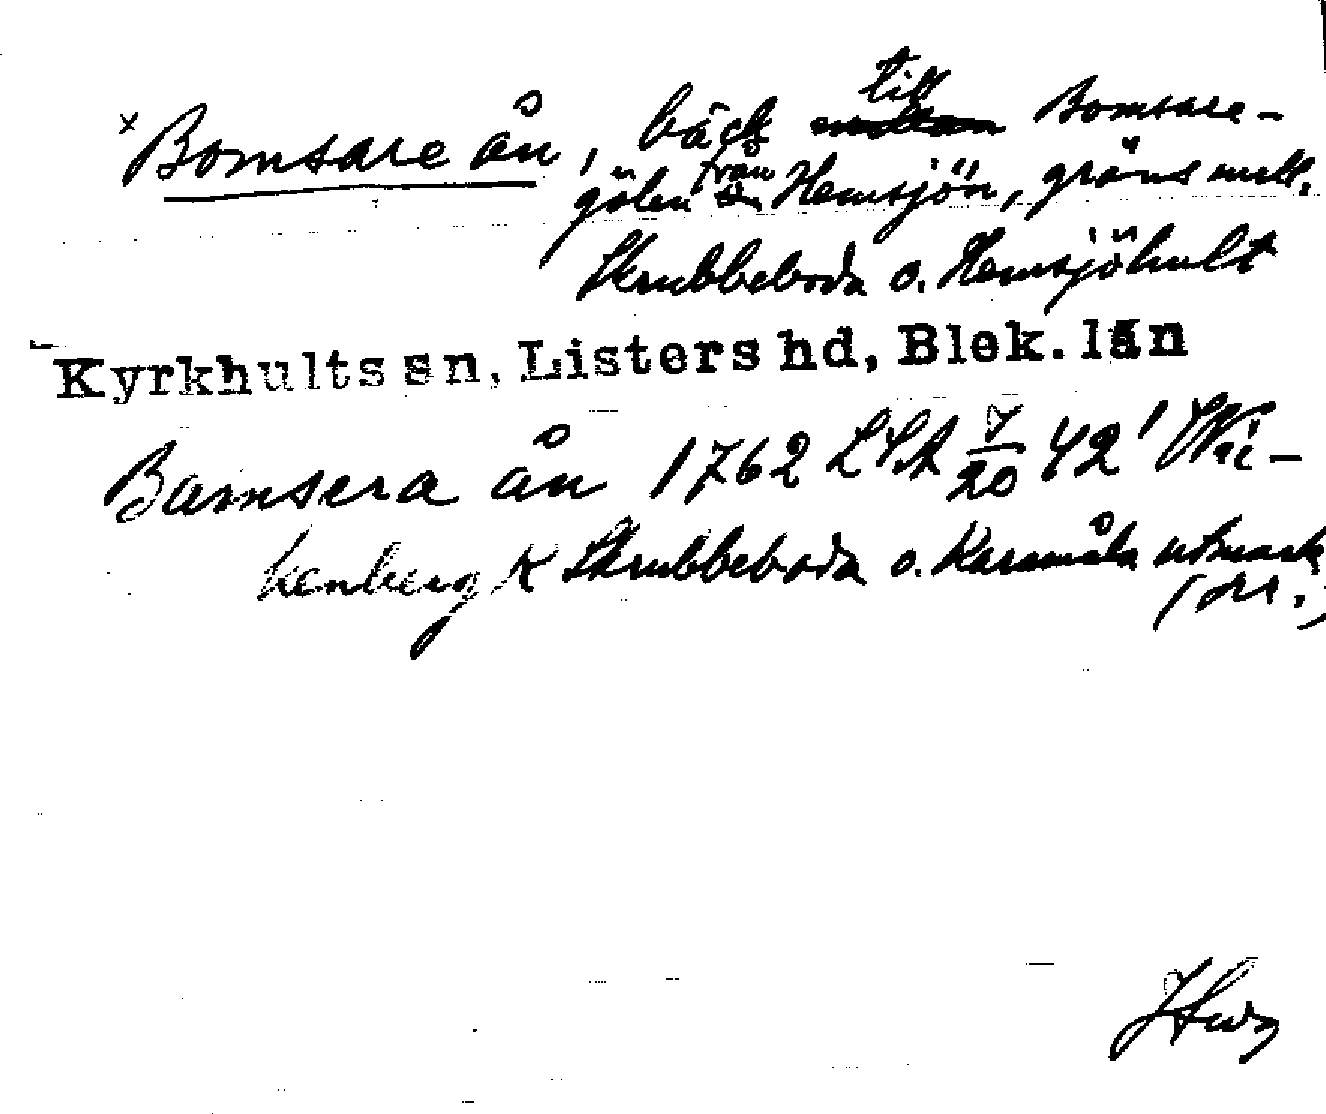 x Bomsare ån, bäck till Bomsare-
gölen från Hemsjön, gräns mell.
Skrubbeboda o. Hemsjöhult
Kyrkhults sn, Listers hd, Blek. län
Bamsera ån 1762 LSA 7/20 42' Wi-
kenberg K Skrubbeboda o. Karamåla utmark